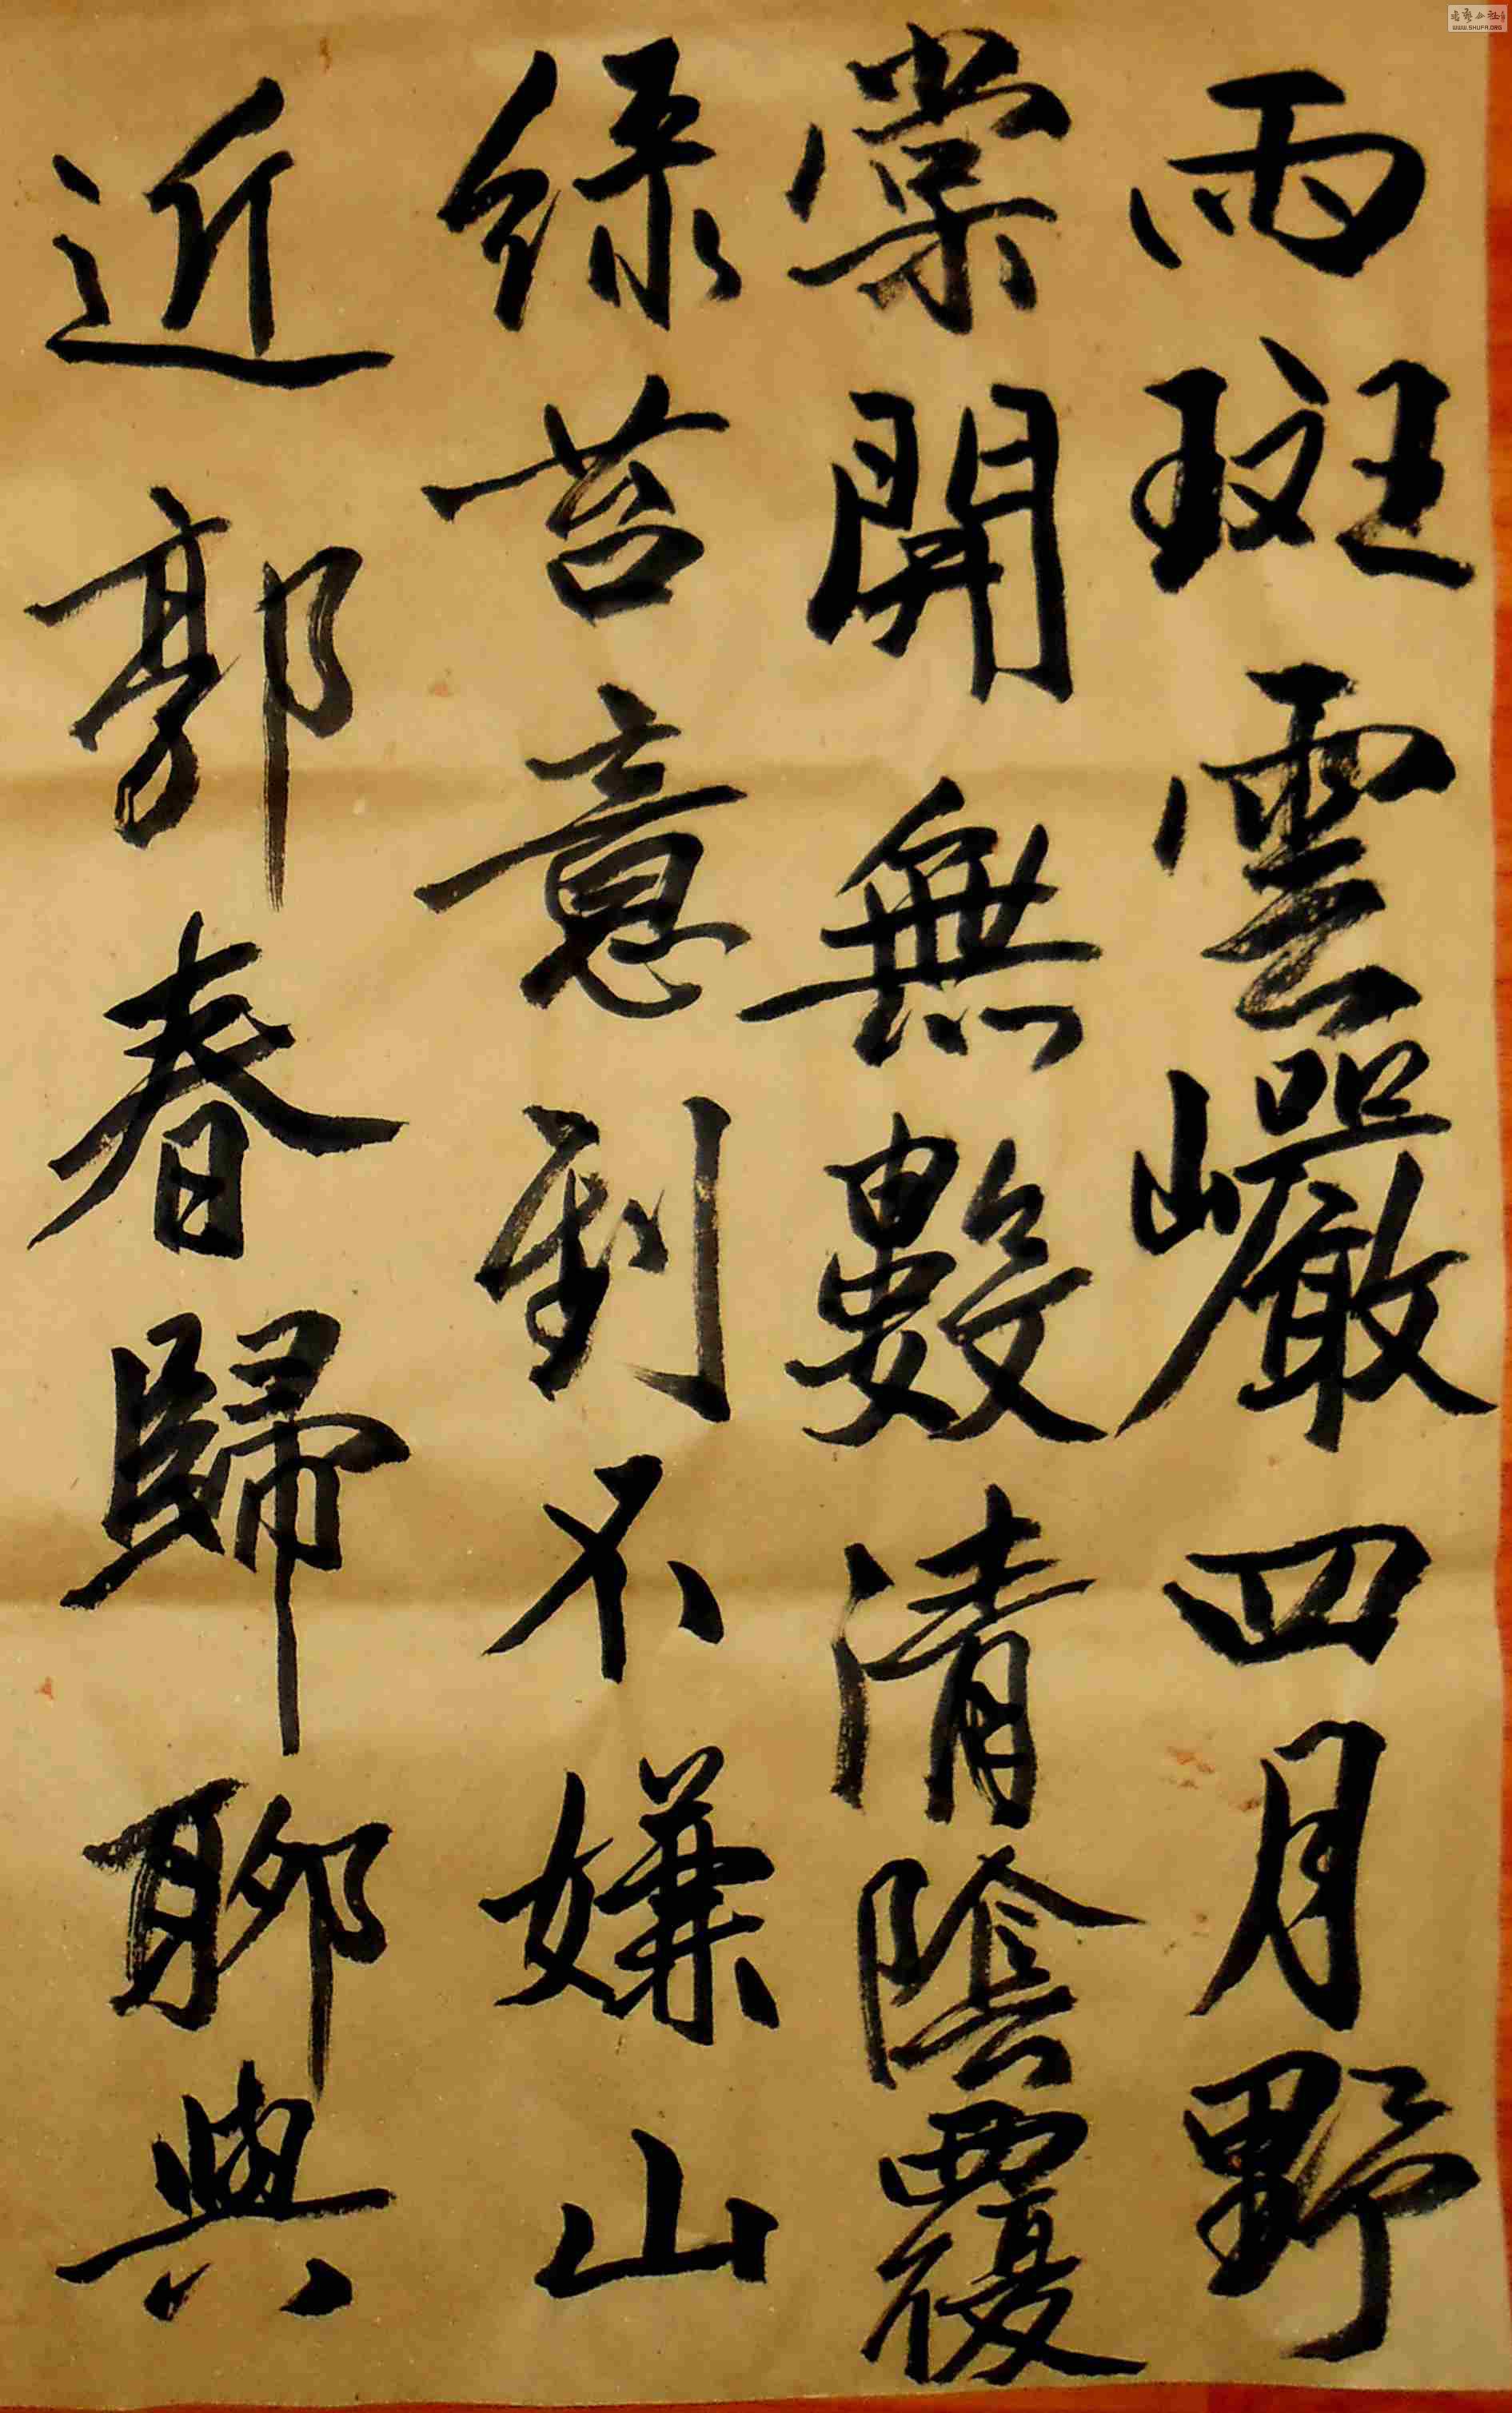 雨斑雲巖四月野
棠開無數清陰覆
綠苔意到不嫌山
近郭春歸聊與
WWW.SHUFA.ORG